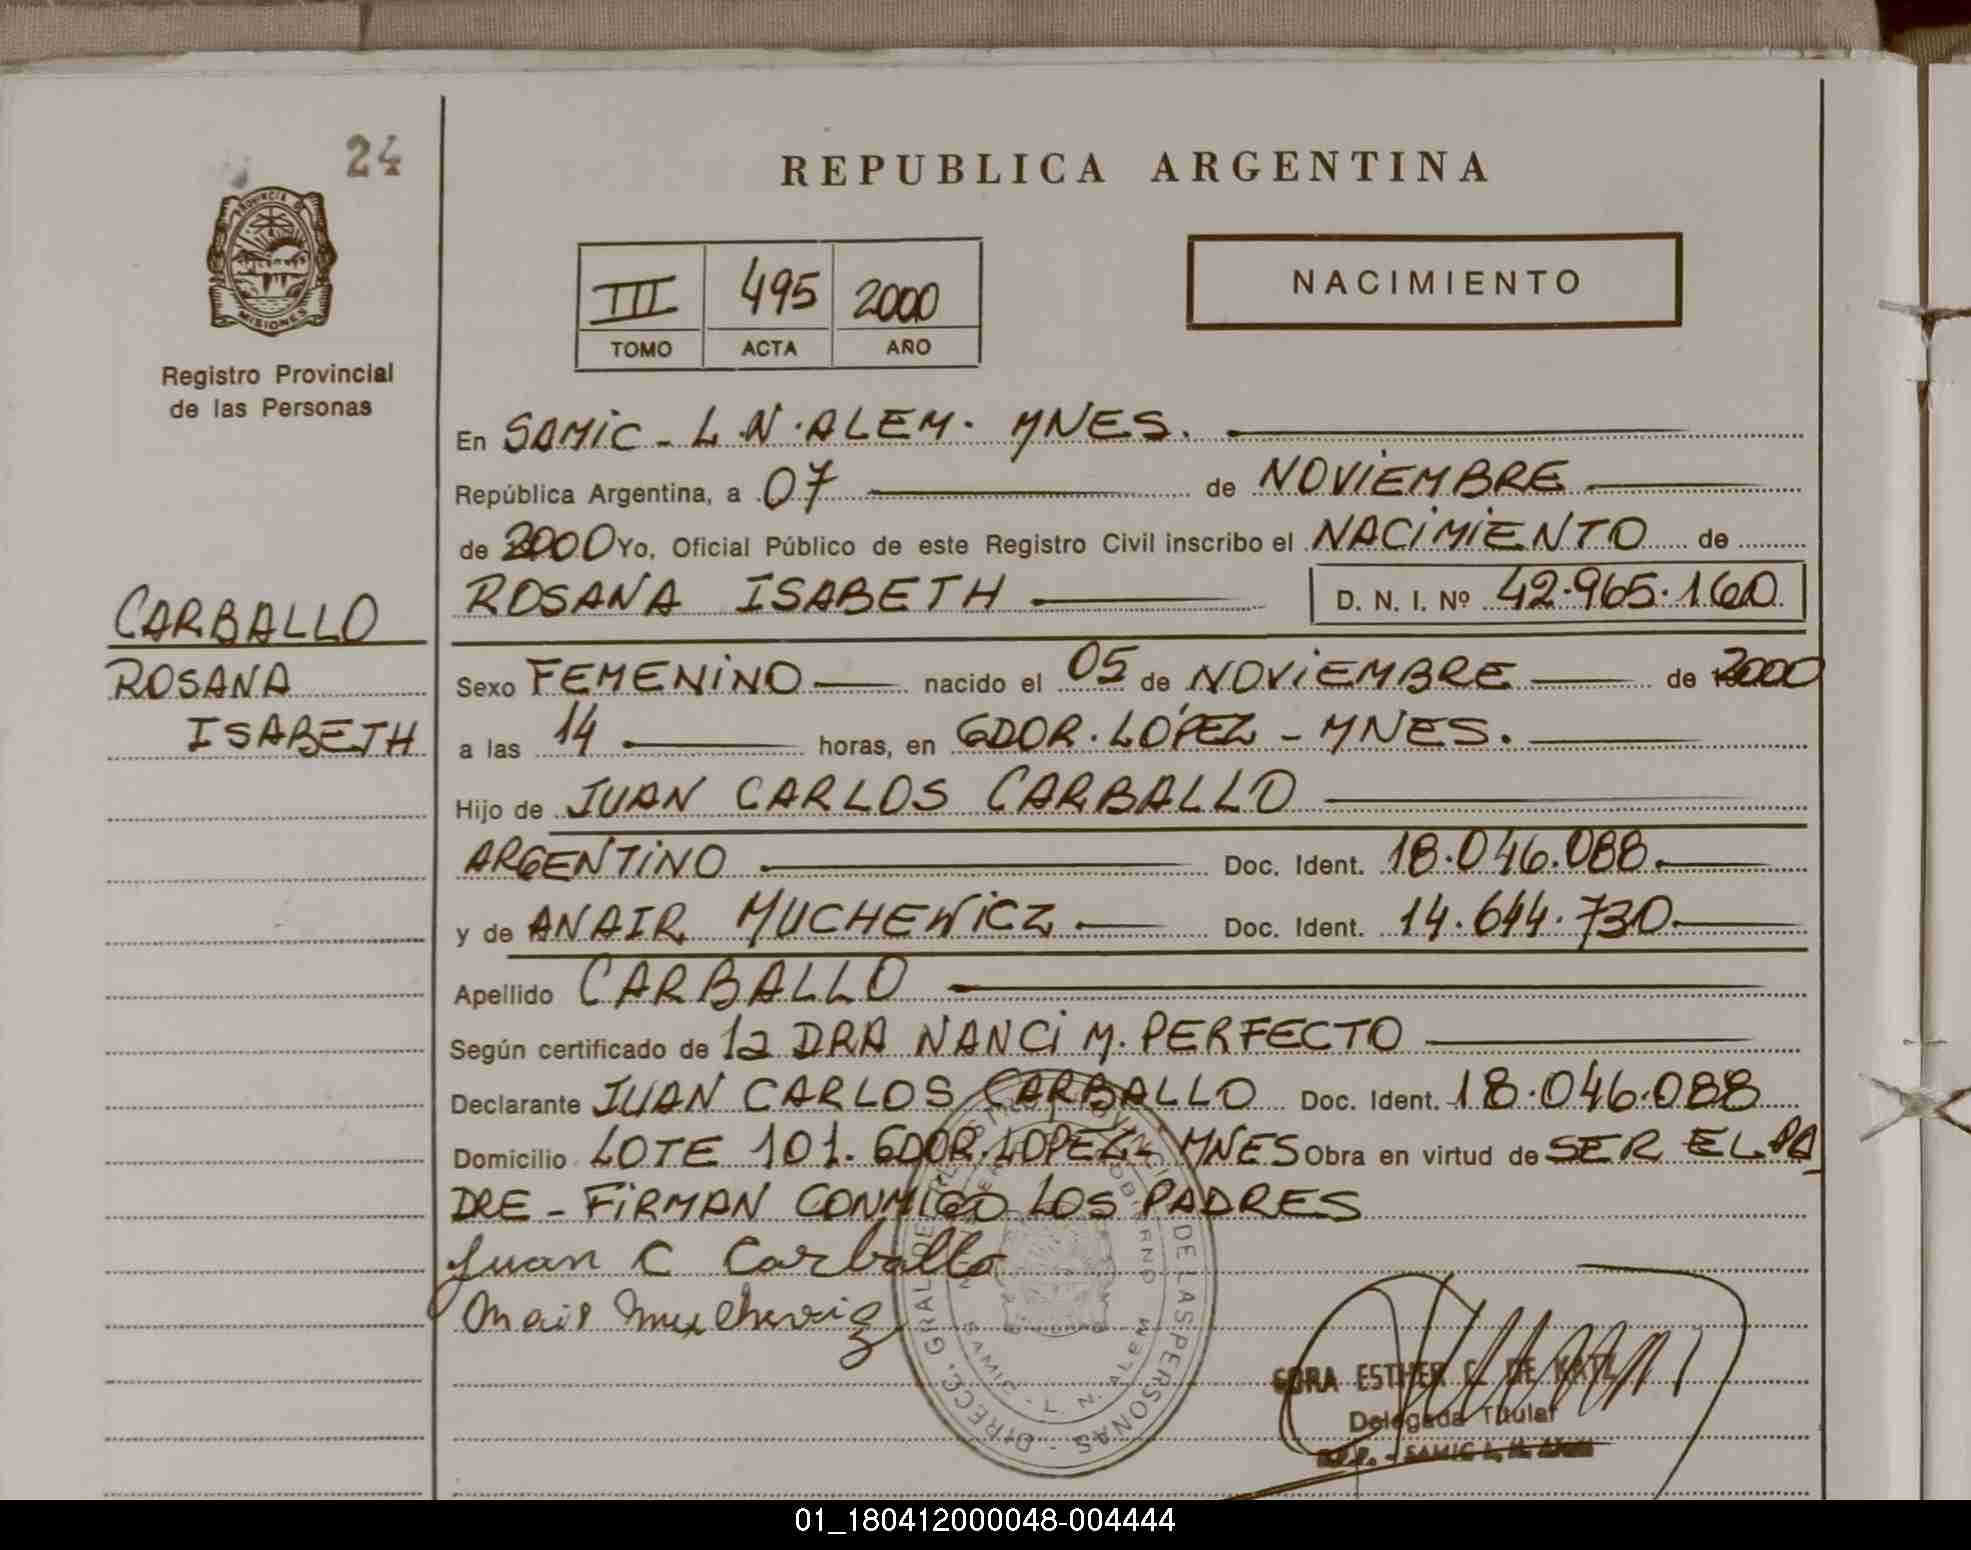 24
REPUBLICA ARGENTINA
PROVINCIA DE
MISIONES
Registro Provincial
de las Personas
III 495 2000
TOMO ACTA AÑO
NACIMIENTO
En SAMIC - L.N.ALEM. MNES.
República Argentina, a 07 de NOVIEMBRE
de 2000 Yo, Oficial Público de este Registro Civil inscribo el NACIMIENTO de
ROSANA ISABETH D. N. I. Nº 42.965.160
CARBALLO
ROSANA
ISABETH
Sexo FEMENINO nacido el 05 de NOVIEMBRE de 2000
a las 14 horas, en GDOR. LÓPEZ - MNES.
Hijo de JUAN CARLOS CARBALLO
ARGENTINO Doc. Ident. 18.046.088.
y de ANAIR MUCHEWICZ Doc. Ident. 14.644.730
Apellido CARBALLO
Según certificado de la DRA NANCI M. PERFECTO
Declarante JUAN CARLOS CARBALLO Doc. Ident. 18.046.088
Domicilio LOTE 101. GDOR. LOPEZ - MNES Obra en virtud de SER EL PA
DRE - FIRMAN CONMIGO LOS PADRES
Juan C Carballo
DIRECC. GRAL DE DE LAS PERSONAS
SAMIC - L. N. ALEM
ESTHER C. DE KATZ
Delegada Titular
SAMIC L. N. Alem
01_180412000048-004444